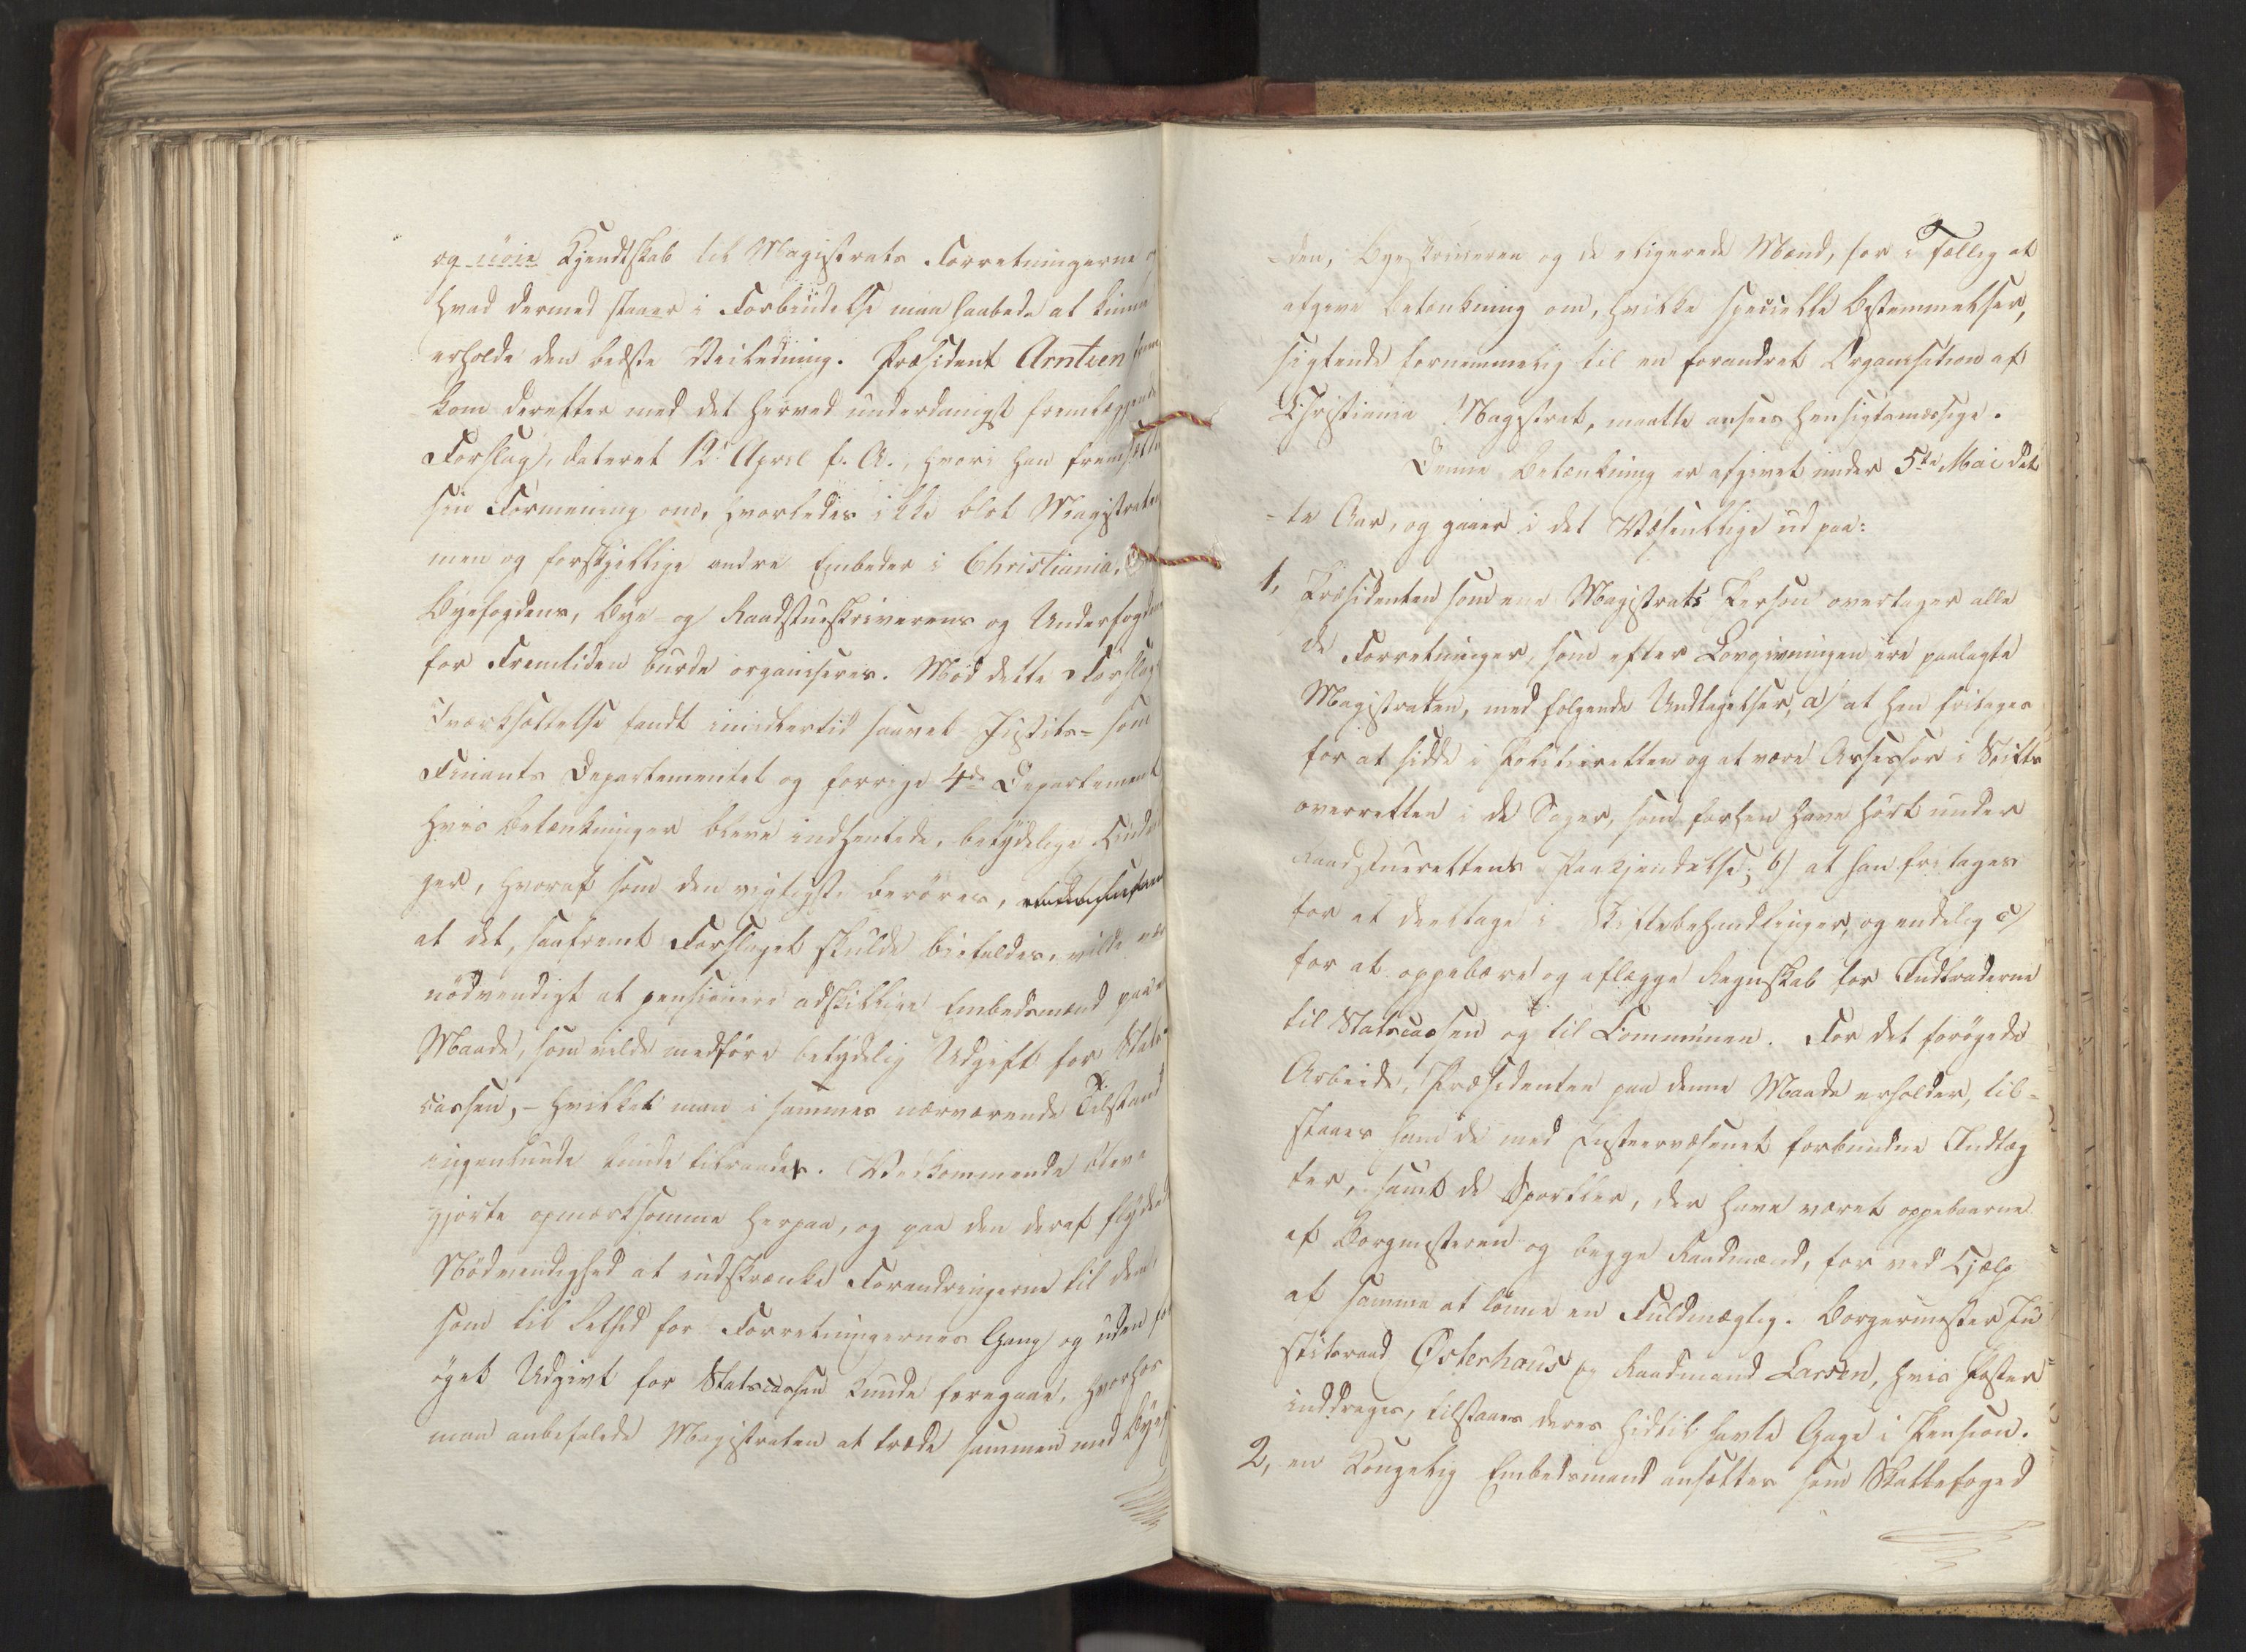 og nöie Kjendskab til Magistrats Forretningerne
hvad dermed staaer i Forbindelse man haabede at kunne
erholde den bedste Veiledning. Præsident Arntzen
kom derefter med det herved underdanigst fremlæggende
Forslag, dateret 12te April f. A., hvori han fremsætter
sin Formening om, hvorledes ikke blot Magistraten
men og forskjellige andre Embeder i Christiania,
Byefogdens, Bye- og Raadstueskriverens og Underfogdens
for Fremtiden burde organiseres. Mod dette Forslags
Iværksættelse fandt imidlertid saavel Justits- som
Finants Departementet og forrige 4de Departement
hvis Betænkninger bleve indhentede, betydelige Hindrin
ger, hvoraf som den vigtigste berøres,
at det, saafremt Forslaget skulde bifaldes, vilde
nödvendigt at pensionere adskillige Embedsmænd paa
Maade, som vilde medföre betydelig Udgift for Stats
cassen, - hvilket man i sammes nærværende Tilstand
ingenlunde kunde tilraade. Vedkommende bleve
gjorte opmærksomme herpaa, og paa den deraf flydende
Nödvendighed at indskrænke Forandringerne til dem,
som til Lethed for Forretningernes Gang og uden for
öget Udgivt for Statscassen kunde foregaae, hvorhos
man anbefalede Magistraten at træde sammen med Byefog
-den, Byeskriveren og de eligerede Mænd, for i Fællig at
afgive Betænkning om, hvilke specielle Bestemmelser,
sigtende fornemmelig til en forandret Organisation af
Christiania Magistrat, maatte ansees hensigtsmæssige.
Denne Betænkning er afgivet under 5te Mai det
-te Aar, og gaaer i det Væsentlige ud paa:
1, Præsidenten som ene Magistrats Person overtager alle
de Forretninger, som efter Lovgivningen ere paalagte
Magistraten, med fölgende Undtagelser, a) at han fritages
for at sidde i Politieretten og at være Assessor i Stifts
overretten i de Sager, som forhen have hört under
Raadstuerettens Paakjendelse; b) at han fritages
for at deeltage i Skiftebehandlinger, og endelig c)
for at oppebære og aflægge Regnskab for Indtraderne
til Statscassen og til Communen. For det forögede
Arbeide, Præsidenten paa denne Maade erholder, til-
staaes ham de med Justeervæsenet forbundne Indtæg
ter, samt de Sportler, der have været oppebaarne
af Borgmesteren og begge Raadmænd, for ved Hjælp
af samme at lönne en Fuldmægtig. Borgermester Ju
stitsraad Osterhaus og Raadmand Larsen, hvis Poster
inddrages, tilstaaes deres hidtil havte Gage i Pension.
2, en Kongelig Embedsmand ansættes som Skattefoged